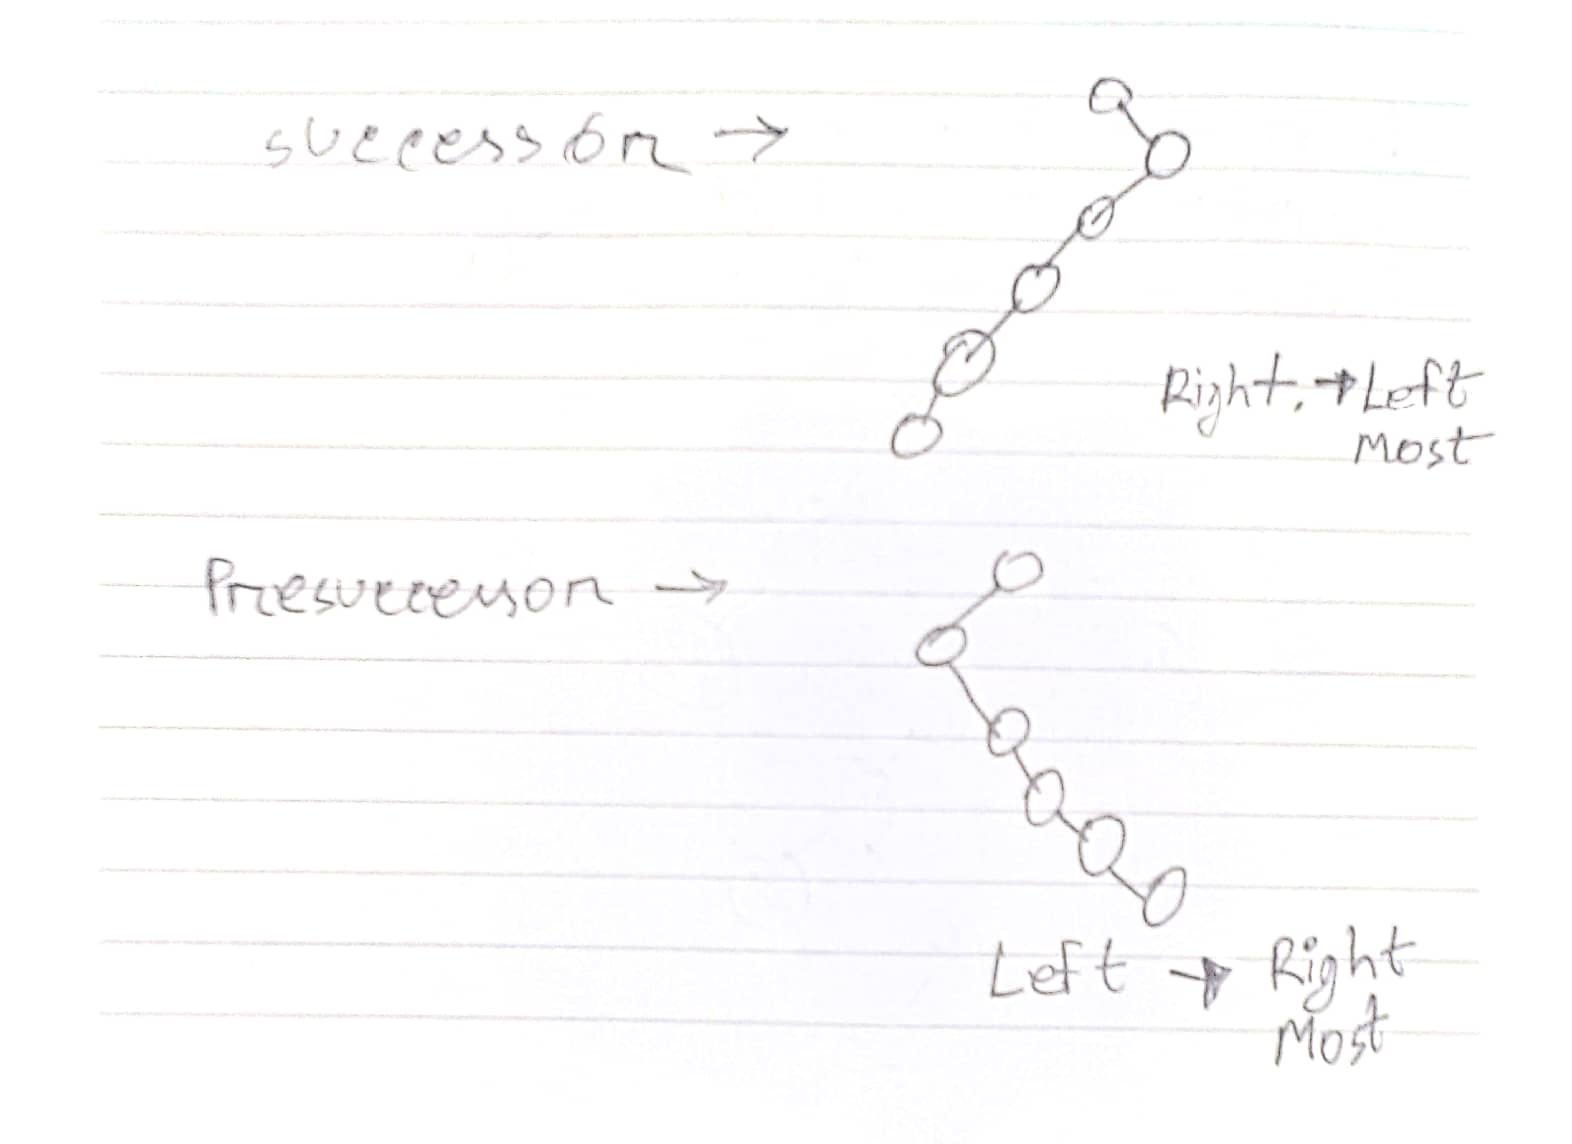 successor →
Right. → Left
Most
Presuccessor →
Left → Right
Most